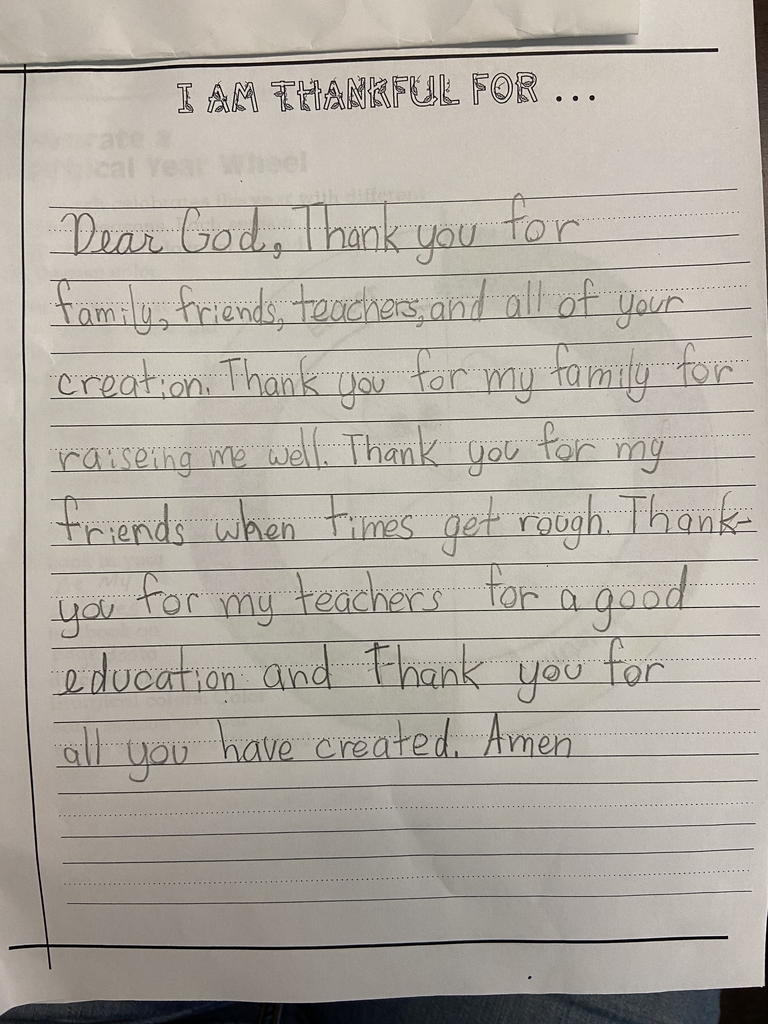 I AM THANKFUL FOR ...
Dear God, Thank you for
family, friends, teachers, and all of your
creation. Thank you for my family for
raiseing me well. Thank you for my
friends when times get rough. Thank-
you for my teachers for a good
education and Thank you for
all you have created. Amen